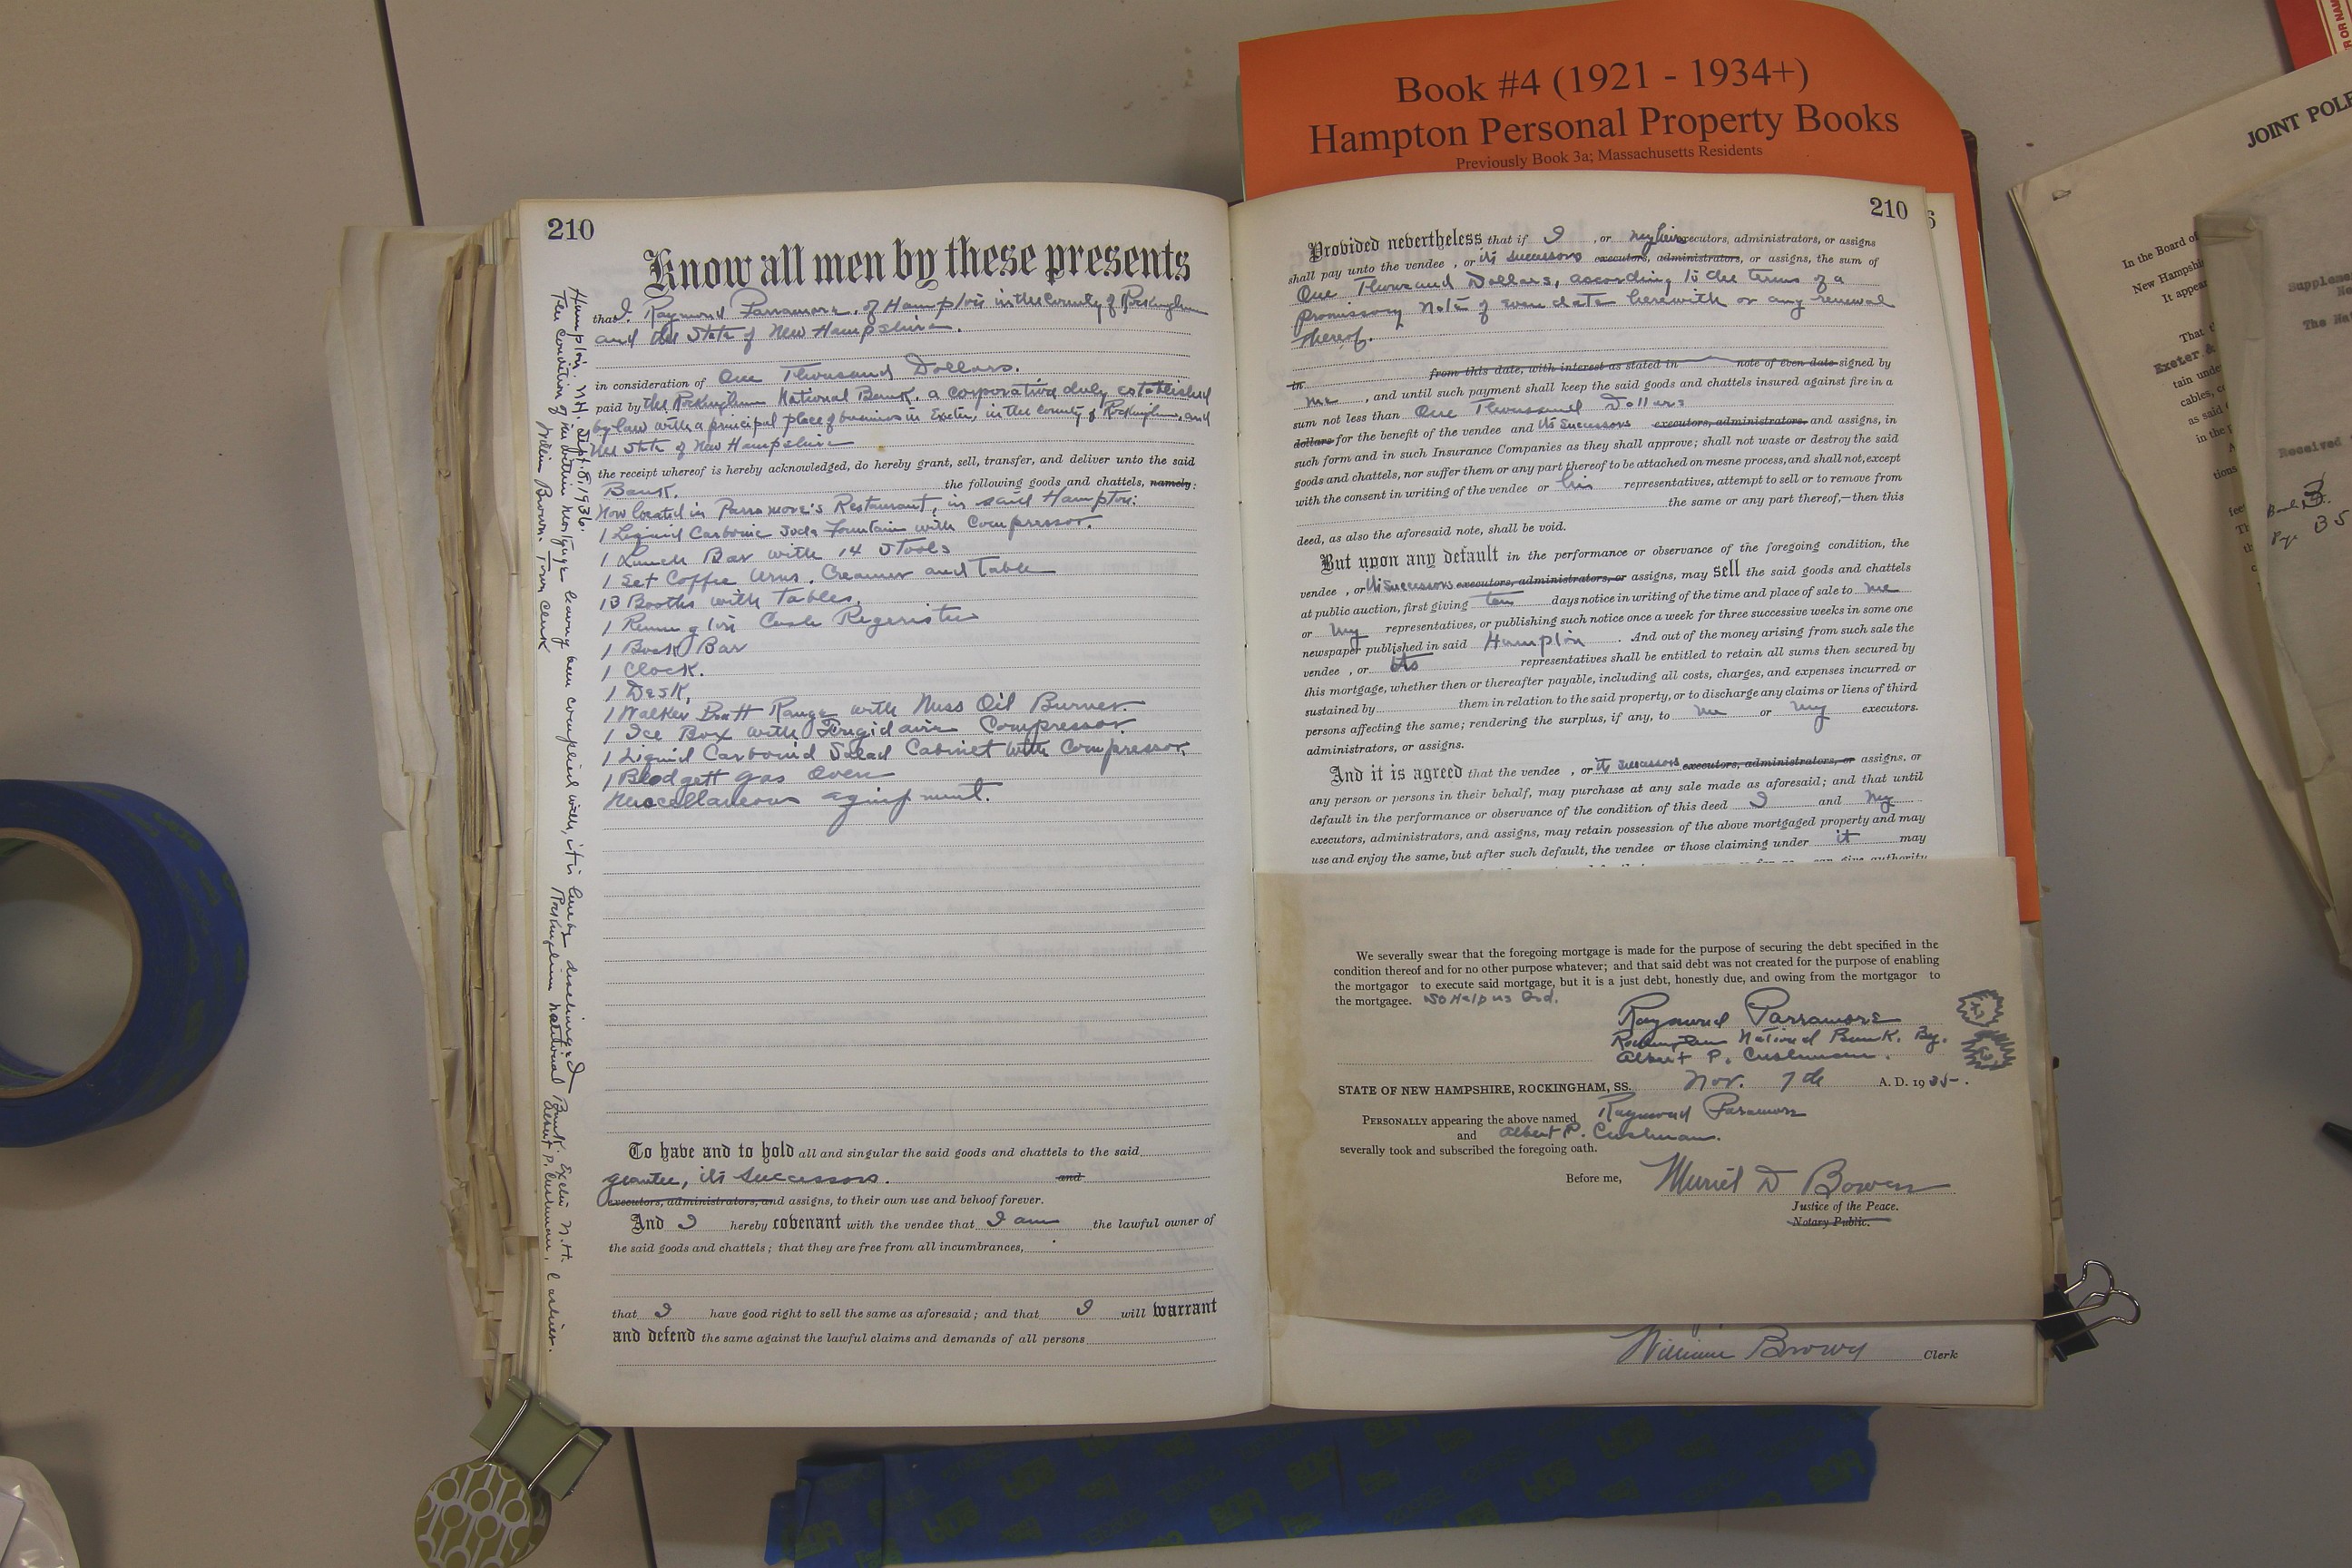 Book #4 (1921 - 1934+)
Hampton Personal Property Books
Previously Book 3a; Massachusetts Residents
210
Know all men by these presents
that I. Raymond Parramore, of Hampton in the County of Rockingham
and the State of New Hampshire.
in consideration of One Thousand Dollars.
paid by the Rockingham National Bank, a corporation duly established
by law with a principal place of business in Exeter, in the county of Rockingham, and
the State of New Hampshire
the receipt whereof is hereby acknowledged, do hereby grant, sell, transfer, and deliver unto the said
Bank. the following goods and chattels, namely:
Now located in Parramore's Restaurant, in said Hampton:
1 Liquid Carbonic Soda Fountain with Compressor.
1 Lunch Bar with 14 Stools
1 Set Coffee Urns, Creamer and Table
13 Booths with Tables.
1 Cash
1 Back Bar
1 Clock.
1 Desk.
1 Walker Pratt Range with Oil Burner.
1 Ice Box with Frigidaire Compressor.
1 Liquid Salad Cabinet with Compressor.
1 Blodgett Gas Oven
Miscellaneous
To have and to hold all and singular the said goods and chattels to the said
grantee, its successors. and
executors, administrators, and assigns, to their own use and behoof forever.
And I hereby covenant with the vendee that I am the lawful owner of
the said goods and chattels; that they are free from all incumbrances,
that I have good right to sell the same as aforesaid; and that I will warrant
and defend the same against the lawful claims and demands of all persons
Hampton, N.H. Sept. 8, 1936.
The condition of the within mortgage having been complied with, it is hereby discharged
Rockingham National Bank. Exeter N.H.
William Brown. Town Clerk Albert P. Cushman, Cashier.
210
Provided nevertheless that if I , or my heirs executors, administrators, or assigns
shall pay unto the vendee , or its successors executors, administrators, or assigns, the sum of
One Thousand Dollars, according to the terms of a
promissory Note of even date herewith or any renewal
thereof.
in from this date, with interest as stated in note of even date signed by
me , and until such payment shall keep the said goods and chattels insured against fire in a
sum not less than One Thousand Dollars
dollars for the benefit of the vendee and its successors executors, administrators, and assigns, in
such form and in such Insurance Companies as they shall approve; shall not waste or destroy the said
goods and chattels, nor suffer them or any part thereof to be attached on mesne process, and shall not, except
with the consent in writing of the vendee or his representatives, attempt to sell or to remove from
the same or any part thereof,—then this
deed, as also the aforesaid note, shall be void.
But upon any default in the performance or observance of the foregoing condition, the
vendee , or its successors executors, administrators, or assigns, may sell the said goods and chattels
at public auction, first giving ten days notice in writing of the time and place of sale to me
or my representatives, or publishing such notice once a week for three successive weeks in some one
newspaper published in said Hampton . And out of the money arising from such sale the
vendee , or its representatives shall be entitled to retain all sums then secured by
this mortgage, whether then or thereafter payable, including all costs, charges, and expenses incurred or
sustained by them in relation to the said property, or to discharge any claims or liens of third
persons affecting the same; rendering the surplus, if any, to me or my executors.
administrators, or assigns.
And it is agreed that the vendee , or its successors executors, administrators, or assigns, or
any person or persons in their behalf, may purchase at any sale made as aforesaid; and that until
default in the performance or observance of the condition of this deed I and my
executors, administrators, and assigns, may retain possession of the above mortgaged property and may
use and enjoy the same, but after such default, the vendee or those claiming under it may
We severally swear that the foregoing mortgage is made for the purpose of securing the debt specified in the
condition thereof and for no other purpose whatever; and that said debt was not created for the purpose of enabling
the mortgagor to execute said mortgage, but it is a just debt, honestly due, and owing from the mortgagor to
the mortgagee. So Help us God.
Raymond Parramore
Rockingham National Bank. By.
Albert P. Cushman.
STATE OF NEW HAMPSHIRE, ROCKINGHAM, SS. Nov. 7th A. D. 1935.
PERSONALLY appearing the above named Raymond Parramore
and Albert P. Cushman.
severally took and subscribed the foregoing oath.
Before me, Muriel D Bowen
Justice of the Peace.
Notary Public.
William Brown Clerk
JOINT POLE
In the Board of
New Hampshi
It appear
That t
Exeter &
tain unde
cables, c
as said
in the p
Supplem
The Na
Received